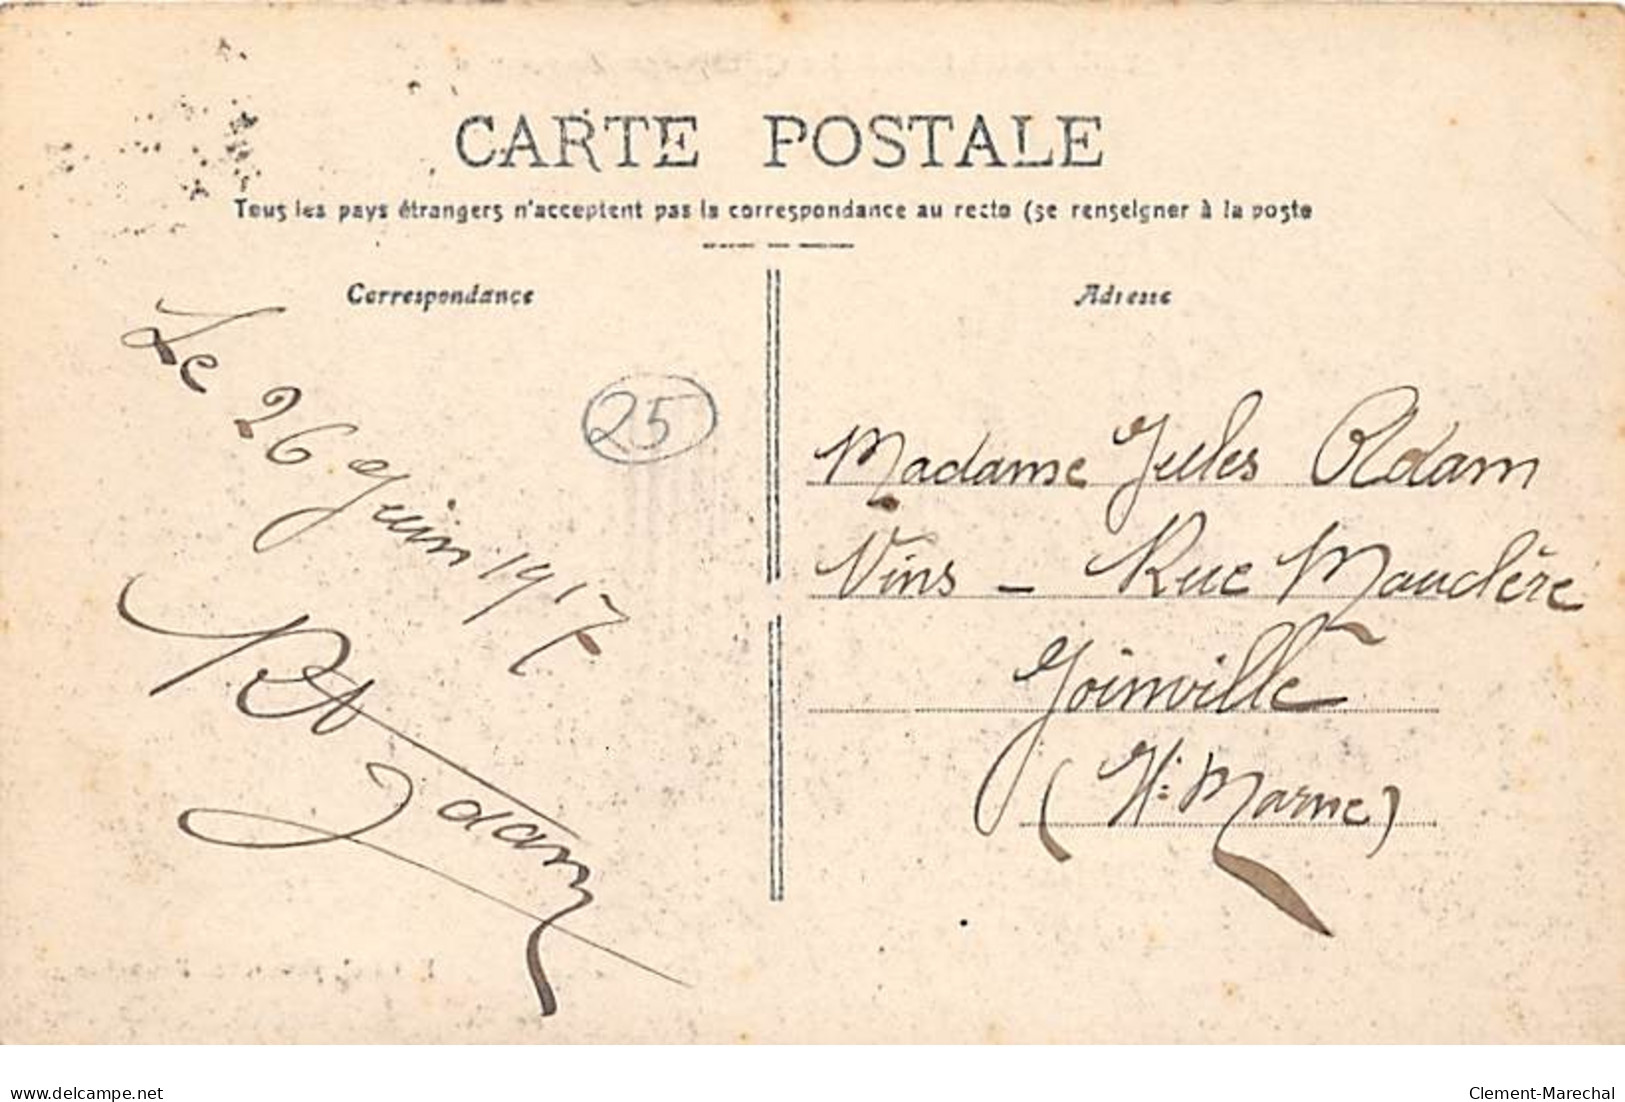 CARTE POSTALE
Tous les pays étrangers n'acceptent pas la correspondance au recto (se renseigner à la poste
Correspondance
Adresse
Le 26 Juin 1917
Adam
25
Madame Jules Adam
Vins - Rue Mauclère
Joinville
(Hte Marne)
delcampe.net
Clement-Marechal